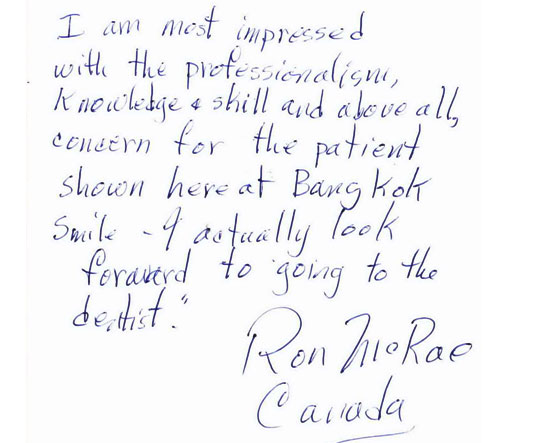 I am most impressed
with the professionalism,
Knowledge & skill and above all,
concern for the patient
shown here at Bangkok
Smile - I actually look
forward to "going to the
dentist."
Ron McRae
Canada